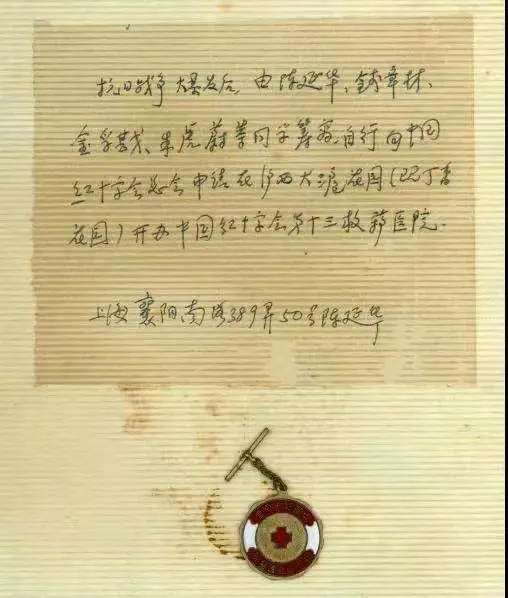 抗日战争爆发后,由陈延华、钱章林、
朱虎蔚等同学筹,自行向中国
红十字会总会申请在沪西大沪花园(现丁香
花园)开办中国红十字会第十三救护医院.
上海襄阳南路389弄50号陈延华